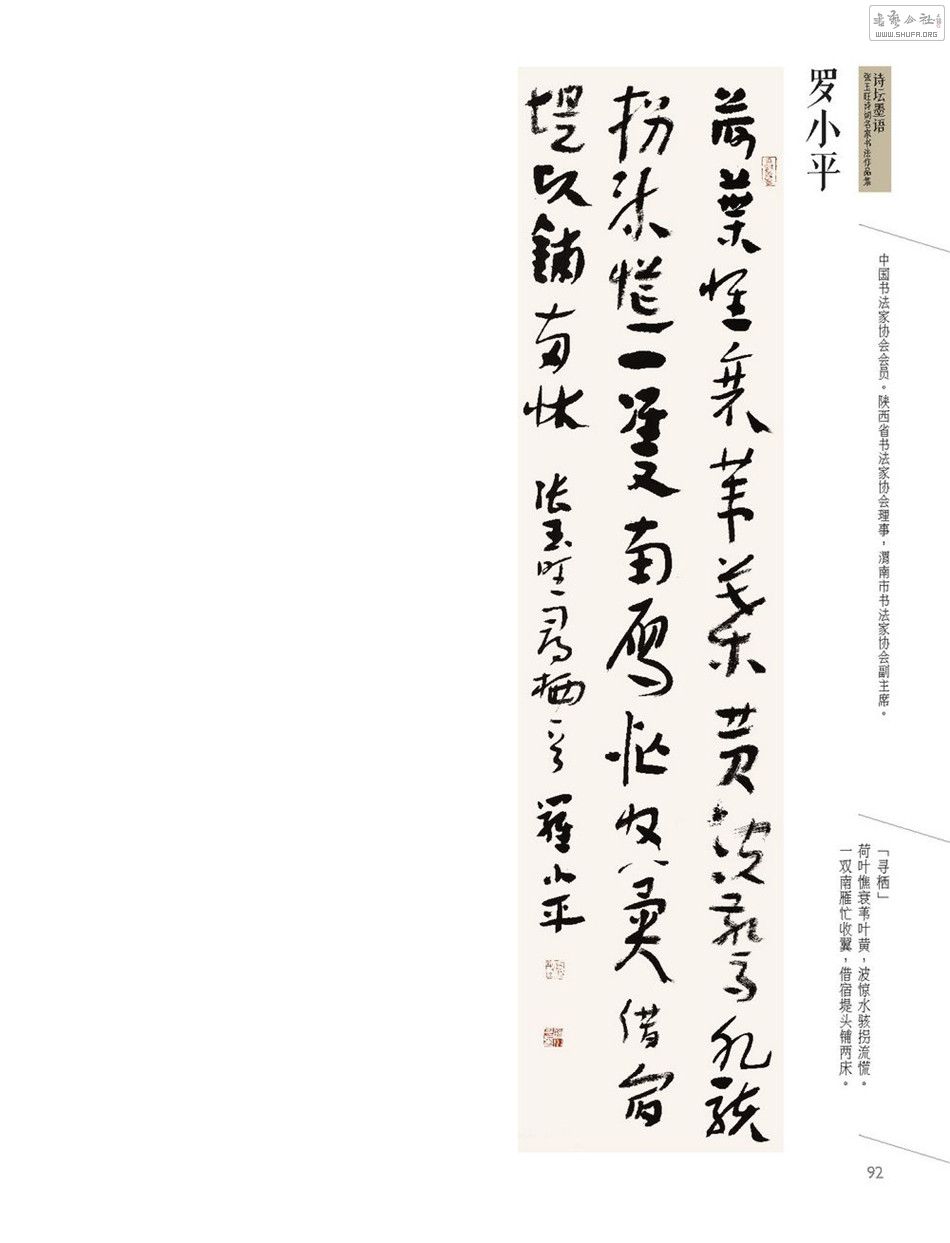 WWW.SHUFA.ORG
诗坛墨语
张玉旺诗词名家书法作品集
罗小平
中国书法家协会会员。陕西省书法家协会理事，渭南市书法家协会副主席。
「寻栖」
荷叶憔衰苇叶黄，波惊水骇拐流慌。
一双南雁忙收翼，借宿堤头铺两床。
荷葉憔衰苇葉黄波驚水駭
拐流慌一雙南雁忙收翼借宿
堤头鋪两床 张玉旺尋栖一首 羅小平
92